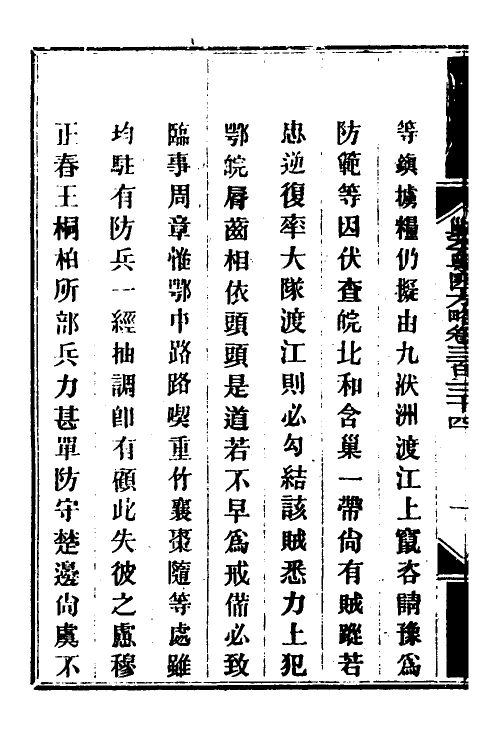 等鎮擄糧仍擬由九洑洲渡江上竄咨請豫爲
防範等因伏查皖北和含巢一帶尙有賊蹤若
忠逆復率大隊渡江則必勾結該賊悉力上犯
鄂皖脣齒相依頭頭是道若不早爲戒備必致
臨事周章惟鄂中路路喫重竹襄棗隨等處雖
均駐有防兵一經抽調卽有顧此失彼之慮穆
正春王桐柏所部兵力甚單防守楚邊尙虞不
方略卷三百三十四
一